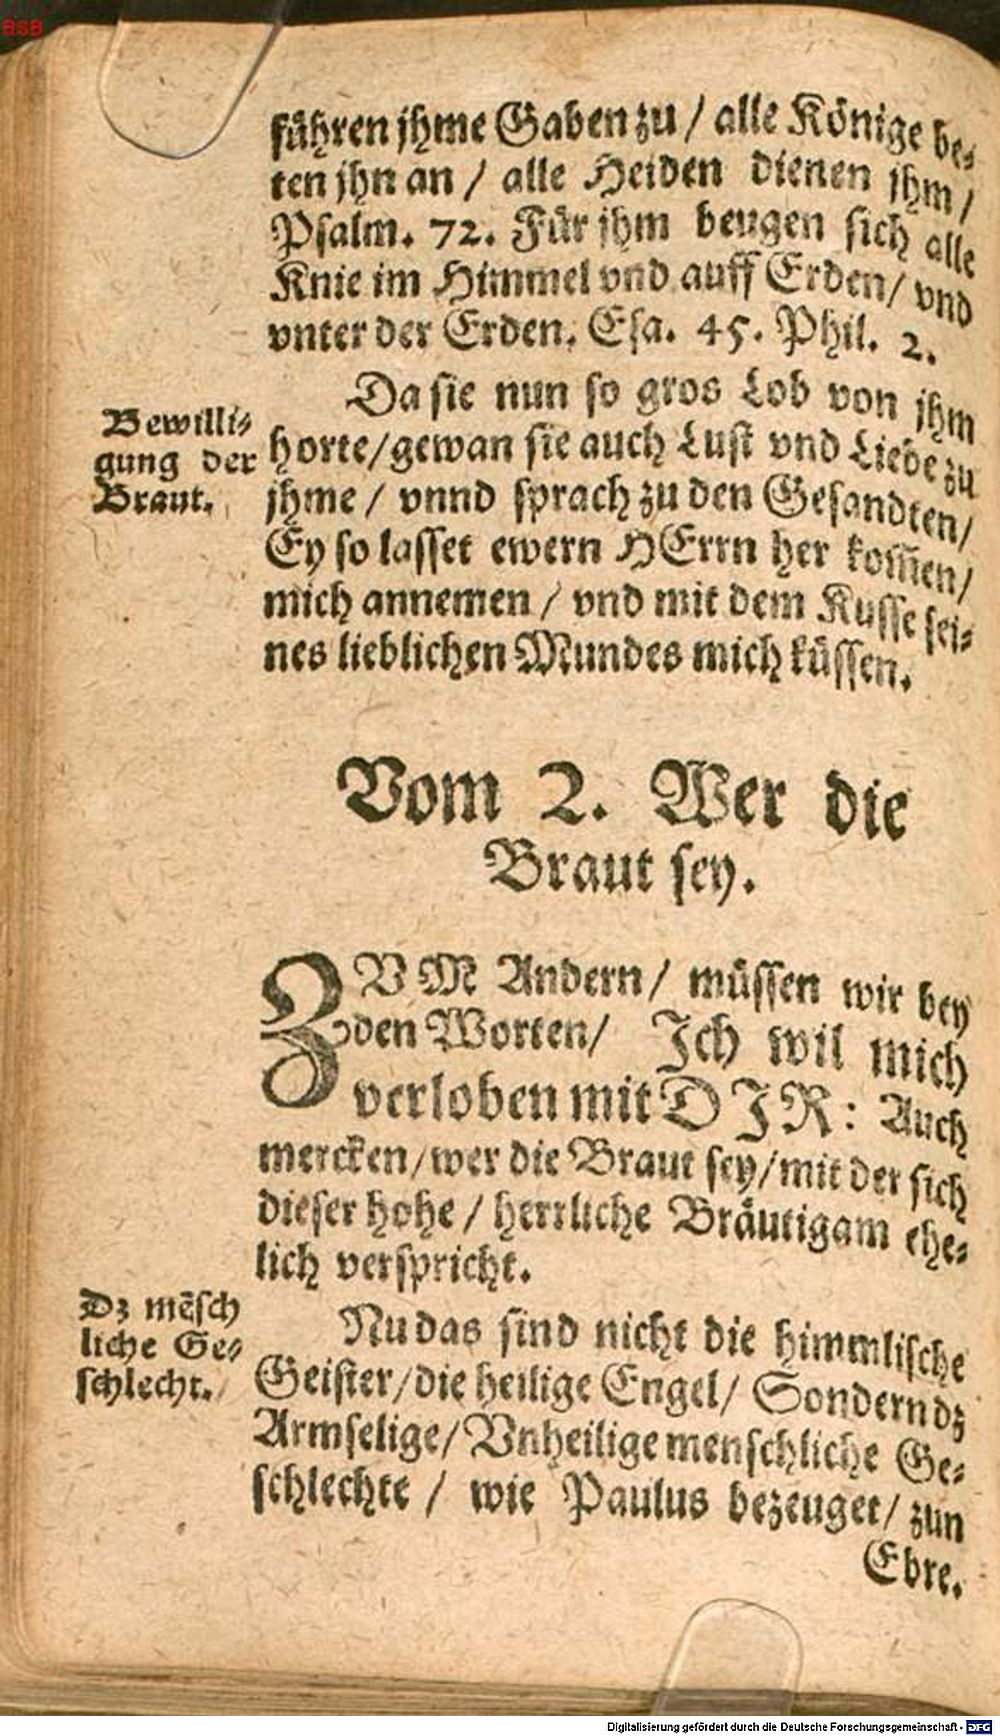 BSB
führen jhme Gaben zu / alle Könige be-
ten jhn an / alle Heiden dienen jhm /
Psalm. 72. Für jhm beugen sich alle
Knie im Himmel vnd auff Erden / vnd
vnter der Erden. Esa. 45. Phil. 2.
Da sie nun so gros Lob von jhm
Bewilli-
gung der
Braut.
horte / gewan sie auch Lust vnd Liebe zu
jhme / vnnd sprach zu den Gesandten /
Ey so lasset ewern HErrn her kom̃en /
mich annemen / vnd mit dem Kusse sei-
nes lieblichen Mundes mich küssen.
Vom 2. Wer die
Braut sey.
ZVM Andern / müssen wir bey
den Worten / Ich wil mich
verloben mit DJR: Auch
mercken / wer die Braut sey / mit der sich
dieser hohe / herrliche Bräutigam ehe-
lich verspricht.
Dz mẽsch
liche Ge-
schlecht.
Nu das sind nicht die himmlische
Geister / die heilige Engel / Sondern dz
Armselige / Vnheilige menschliche Ge-
schlechte / wie Paulus bezeuget / zun
Ebre.
Digitalisierung gefördert durch die Deutsche Forschungsgemeinschaft - DFG